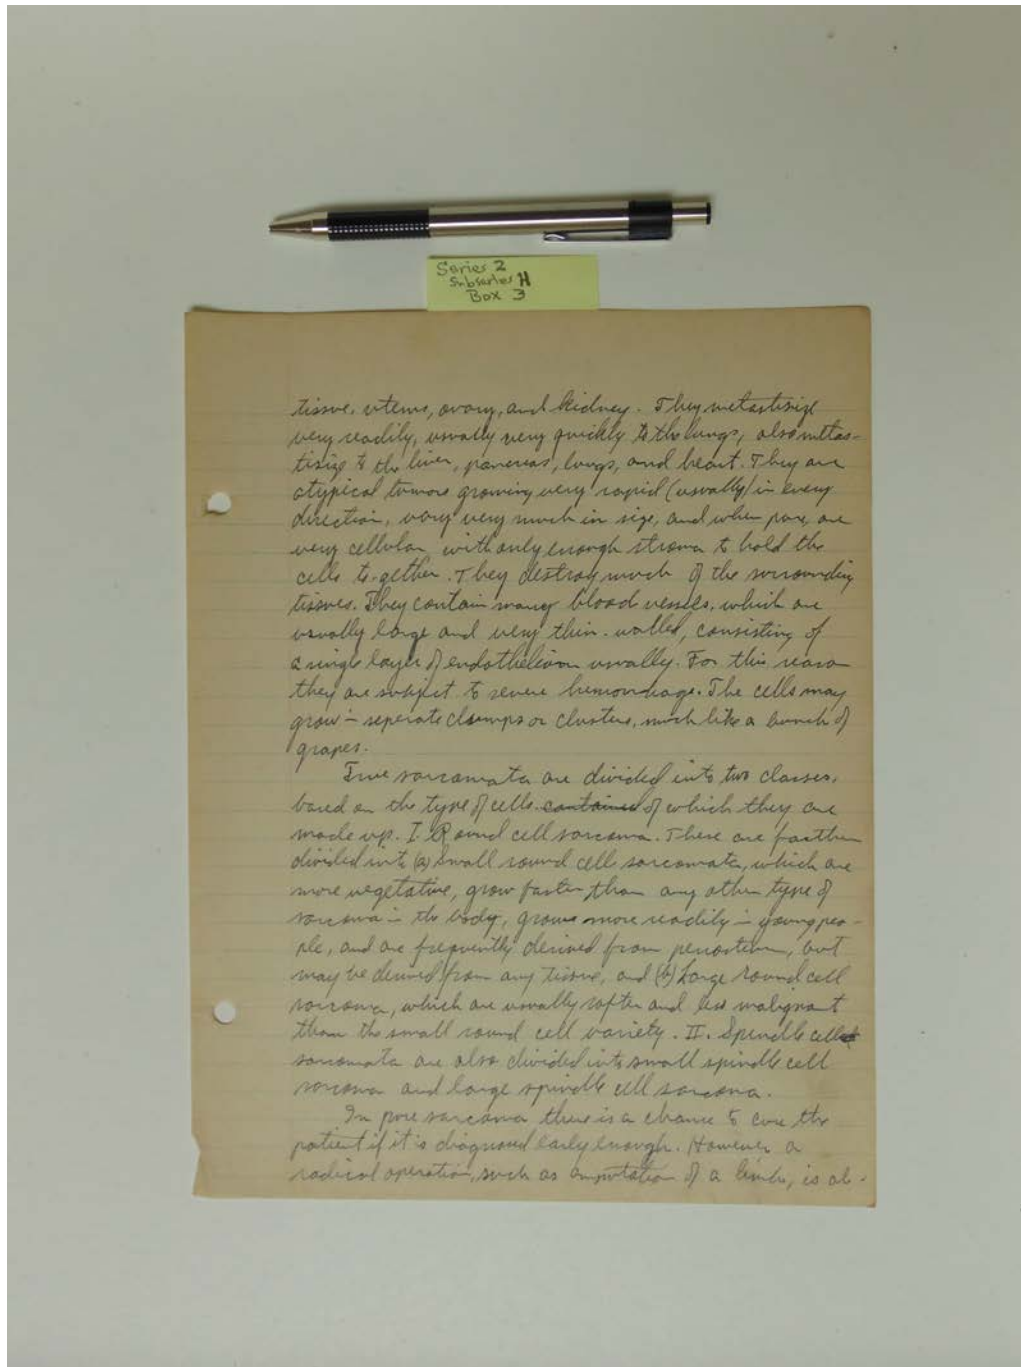 Series 2
Subseries H
Box 3
tissue, uterus, ovary, and kidney. They metastisize
very readily, usually very quickly to the lungs, also metas-
tisize to the liver, pancreas, lungs, and heart. They are
atypical tumors growing very rapid (usually) in every
direction, vary very much in size, and when pure, are
very cellular with only enough stroma to hold the
cells to-gether. They destroy much of the surrounding
tissues. They contain many blood vessels, which are
usually large and very thin-walled, consisting of
a single layer of endothelium usually. For this reason
they are subject to severe hemorrhage. The cells may
grow in seperate clumps or clusters, much like a bunch of
grapes.
True sarcomata are divided into two classes,
based on the type of cells contained of which they are
made up. I. Round cell sarcoma. These are further
divided into (a) Small round cell sarcomata, which are
more vegetative, grow faster than any other type of
sarcoma in the body, grows more readily in young peo-
ple, and are frequently derived from periosteum, but
may be derived from any tissue, and (b) Large round cell
sarcoma, which are usually softer and less malignant
than the small round cell variety. II. Spindle cell
sarcomata are also divided into small spindle cell
sarcoma and large spindle cell sarcoma.
In pure sarcoma there is a chance to cure the
patient if it is diagnosed early enough. However a
radical operation, such as amputation of a limb, is al-